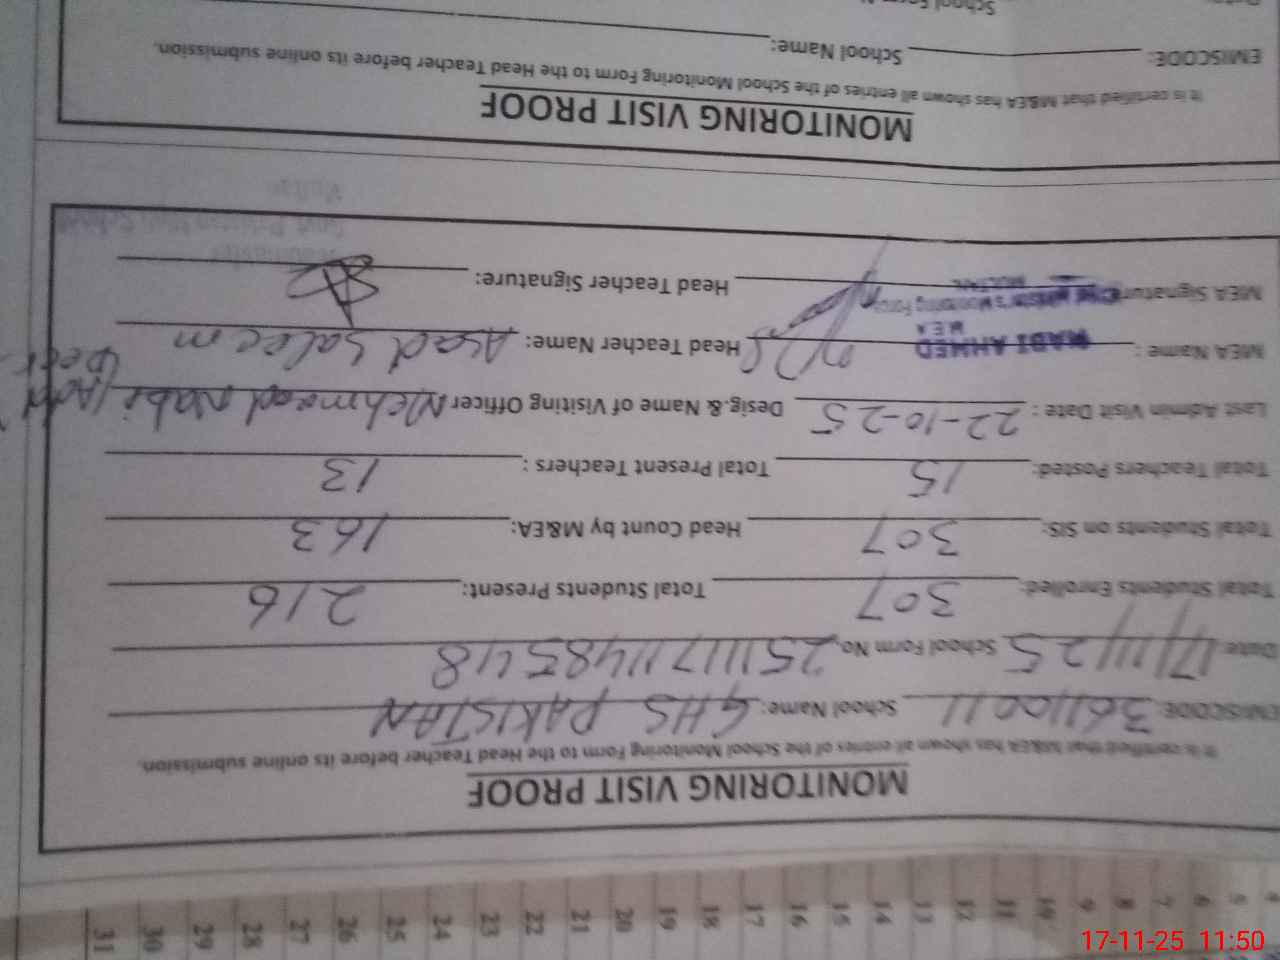 31 30 29 28 27 26 25 24 23 22 21 20 19 18 17 16 15 14 13 12 11 10 9 8 7 6 5
MONITORING VISIT PROOF
It is certified that M&EA has shown all entries of the School Monitoring Form to the Head Teacher before its online submission.
EMISCODE: 36110011 School Name: GHS PAKISTAN
Date: 17/11/25 School Form No. 25111711485548
Total Students Enrolled: 307 Total Students Present: 216
Total Students on SIS: 307 Head Count by M&EA: 163
Total Teachers Posted: 15 Total Present Teachers : 13
Last Admin Visit Date : 22-10-25 Desig.& Name of Visiting Officer Mehmood Nabi
MEA Name : NABI AHMED Head Teacher Name: Asad Saleem
M E A
MEA Signature Monitoring Force Head Teacher Signature:
MULTAN
MONITORING VISIT PROOF
It is certified that M&EA has shown all entries of the School Monitoring Form to the Head Teacher before its online submission.
EMISCODE: School Name:
17-11-25 11:50